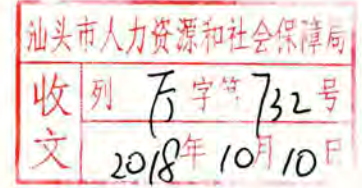 汕头市人力资源和社会保障局
收文
列 字第732号
2018年10月10日